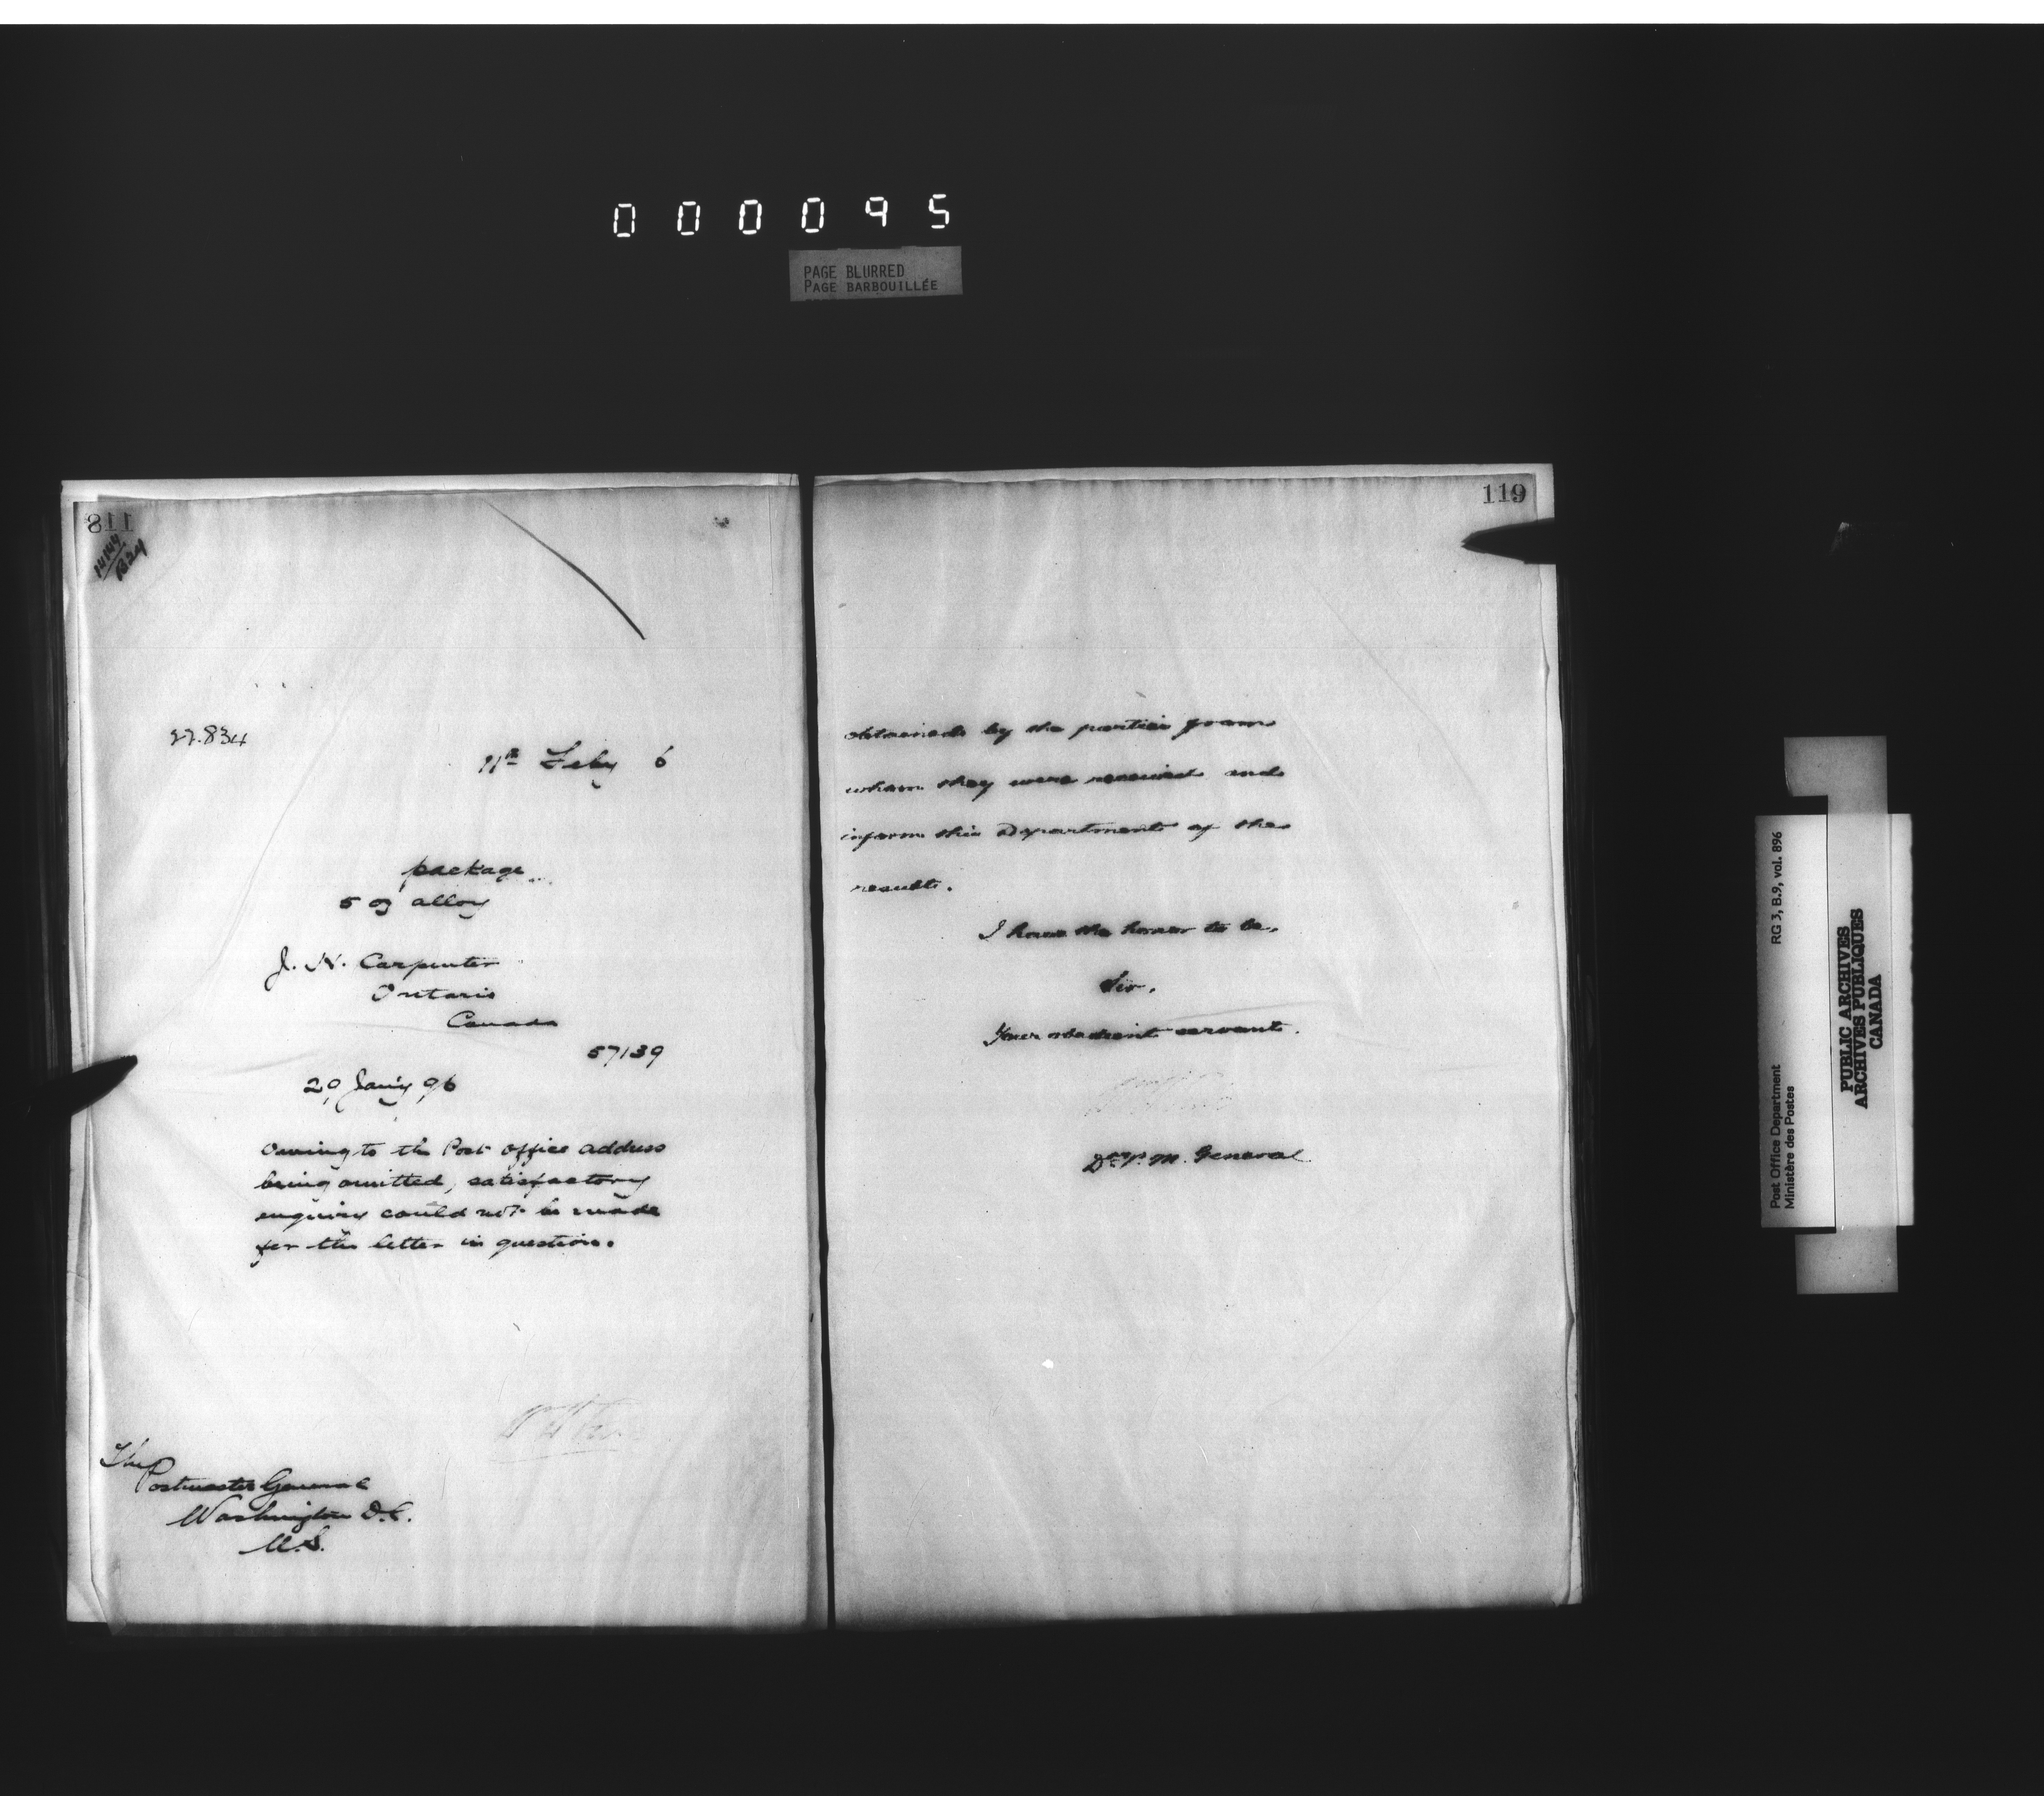 000095
PAGE BLURRED
PAGE BARBOUILLÉE
118
14144
B24
27.834
11th Feby 6
package
5 oz alloy
J. H. Carpenter
Ontario
Canada
57139
29 Jan'y 96
Owing to the Post Office address
being omitted, satisfactory
enquiry could not be made
for the letter in question.
The
Postmaster General
Washington D.C.
U.S.
119
obtained by the parties from
whom they were received and
inform this Department of the
result.
I have the honor to be,
Sir,
Your obedient servant.
D^y P. M. General
Post Office Department
Ministère des Postes
RG 3, B.9, vol. 896
PUBLIC ARCHIVES
ARCHIVES PUBLIQUES
CANADA